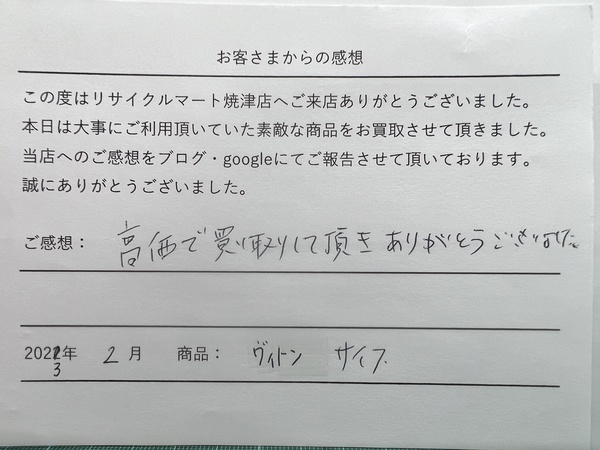 お客さまからの感想
この度はリサイクルマート焼津店へご来店ありがとうございました。
本日は大事にご利用頂いていた素敵な商品をお買取させて頂きました。
当店へのご感想をブログ・googleにてご報告させて頂いております。
誠にありがとうございました。
ご感想： 高価で買い取りして頂きありがとうございました
2023年 2月 商品： ヴィトン サイフ